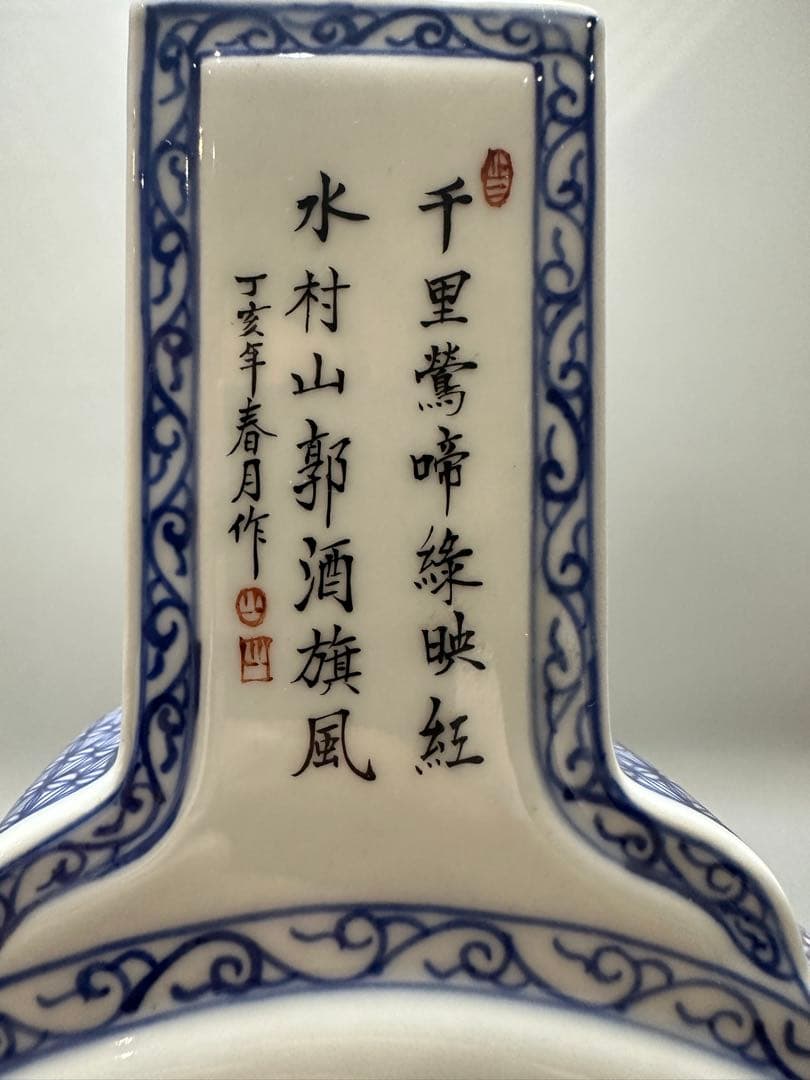 千里鶯啼綠映紅
水村山郭酒旗風
丁亥年春月作